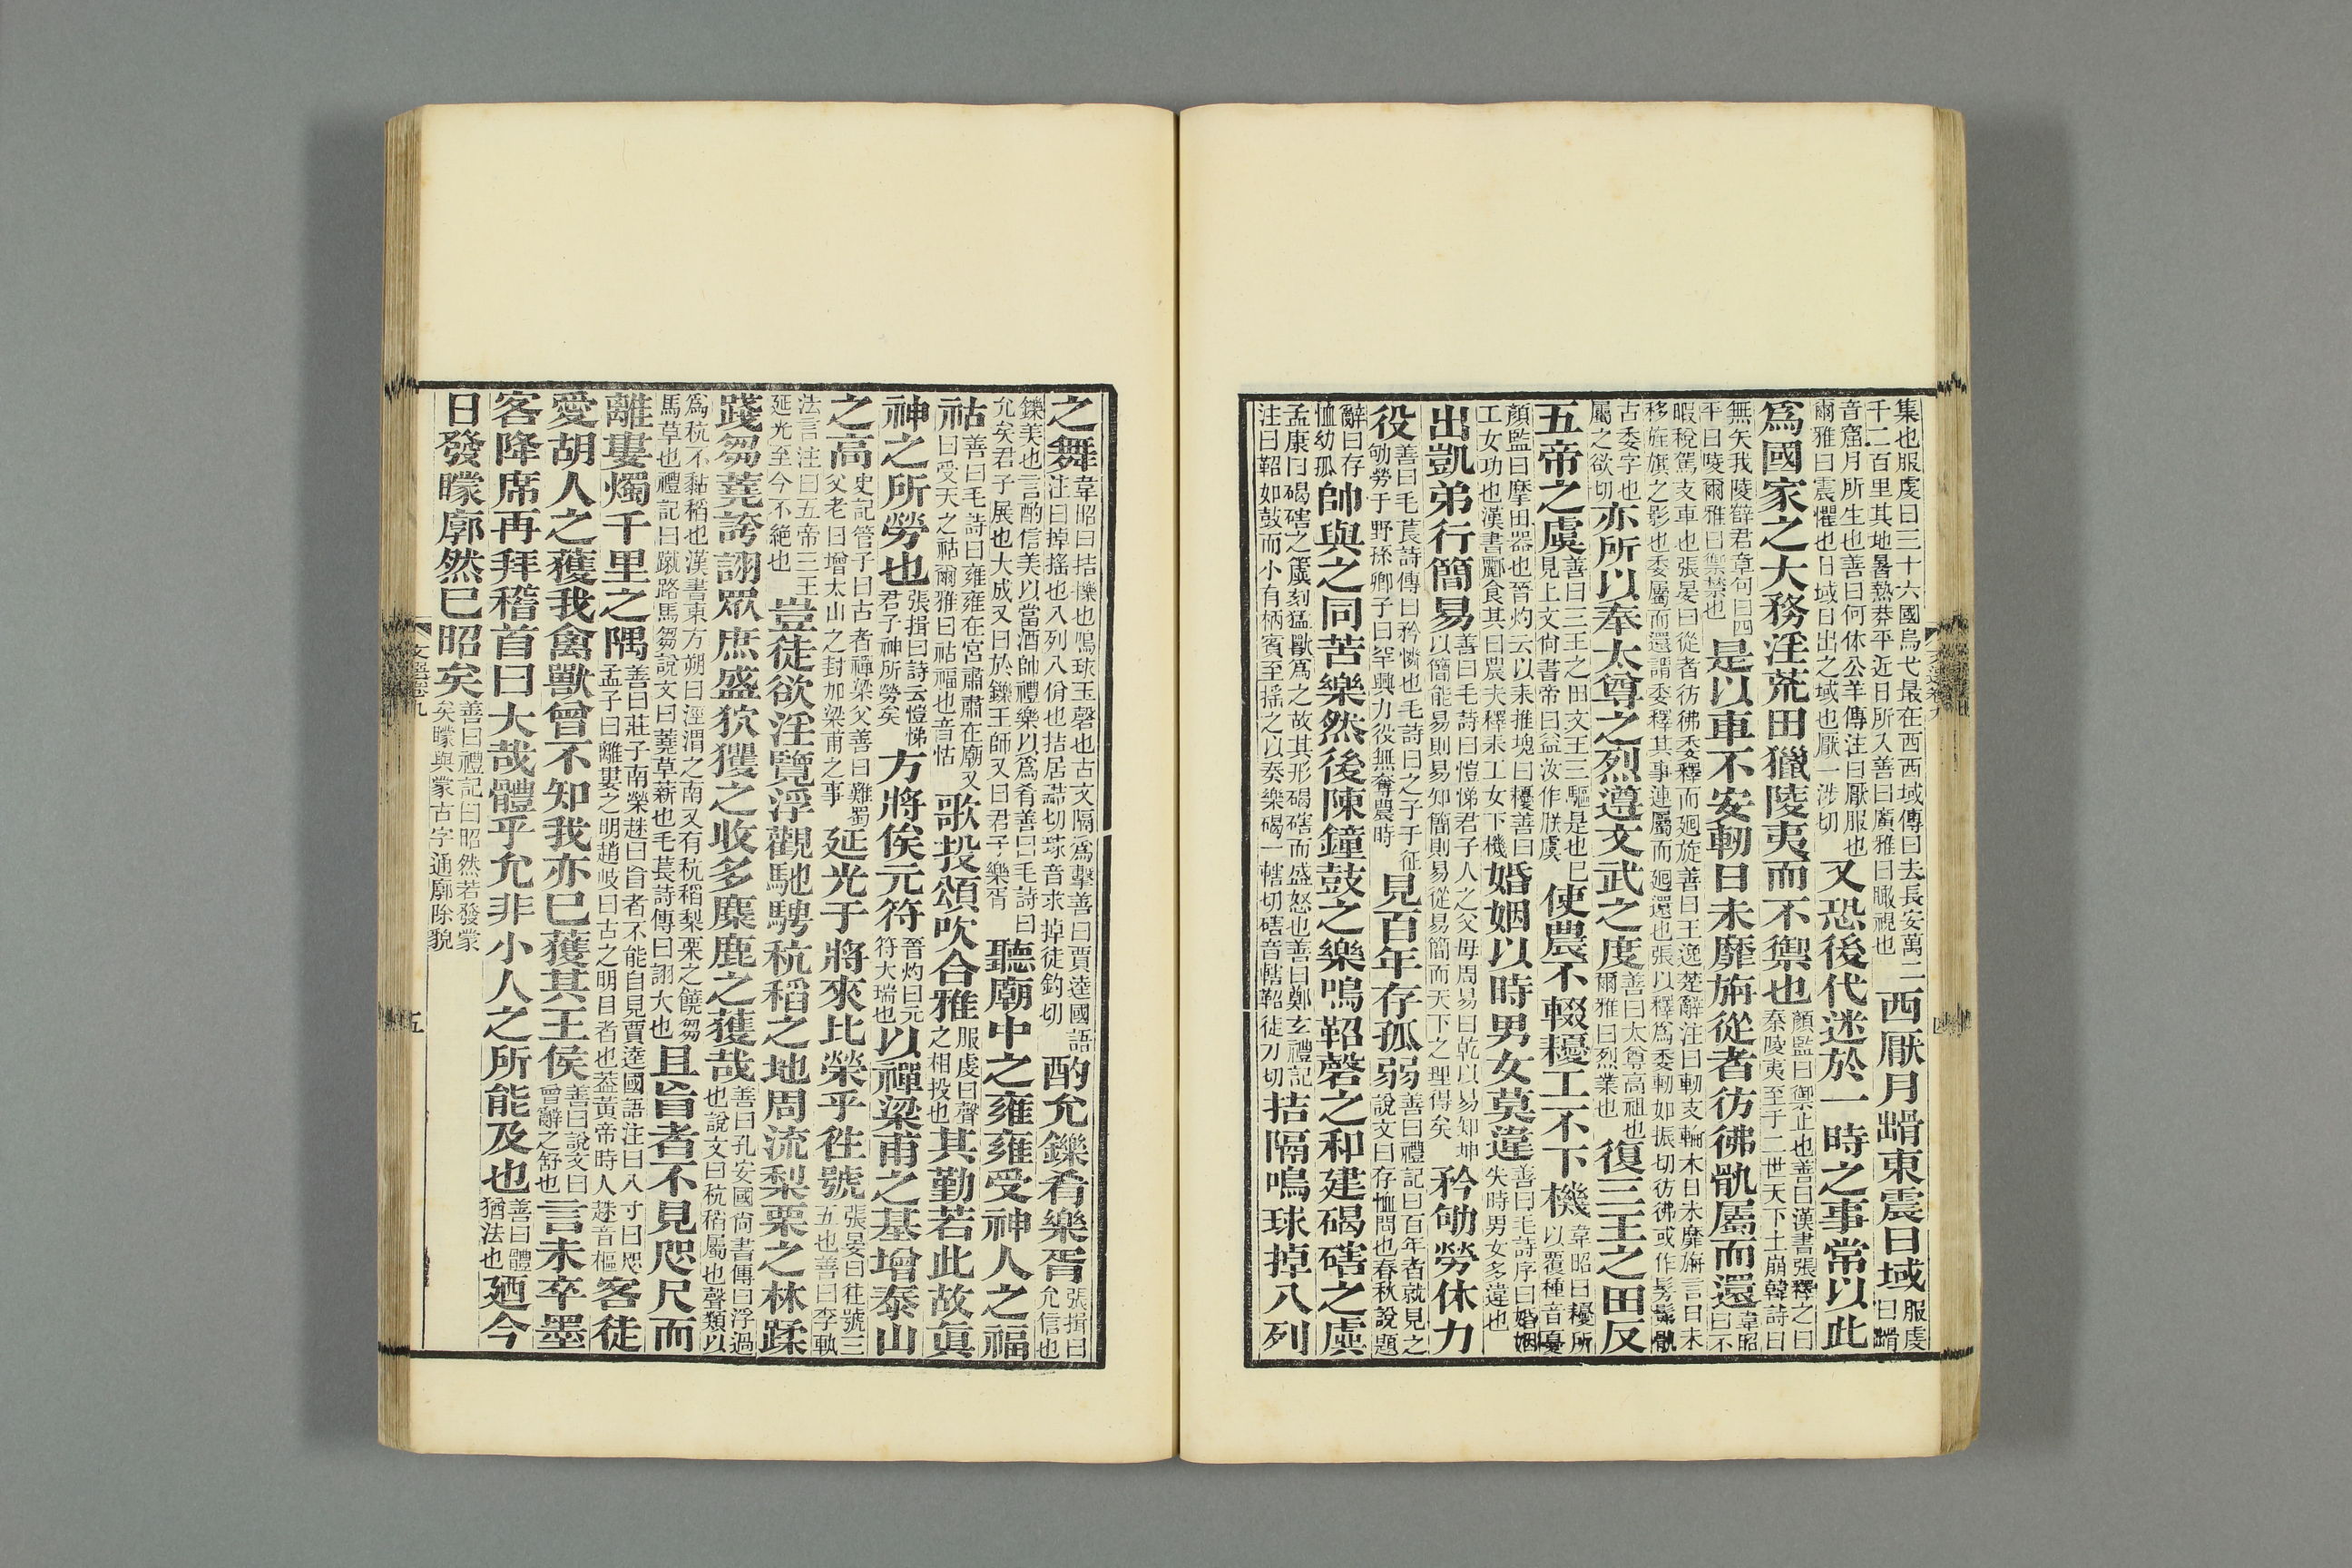 集也服虔曰三十六國烏弋最在西西域傳曰去長安萬二
千二百里其地暑熱莽平近日所入善曰廣雅曰瞰視也
西厭月䠢東震日域
服虔
曰䠢
音窟月所生也善曰何休公羊傳注曰厭服也
爾雅曰震懼也日域日出之域也厭一涉切
又恐後代迷於一時之事常以此
爲國家之大務淫荒田獵陵夷而不禦也
顏監曰禦止也善曰漢書張釋之曰
秦陵夷至于二世天下土崩韓詩曰
無矢我陵薛君章句曰四
平曰陵爾雅曰禦禁也
是以車不安軔日未靡旃從者彷彿骩屬而還
韋昭
曰不
暇稅駕支車也張晏曰從者彷彿委釋而廻旋善曰王逸楚辭注曰軔支輪木日未靡旃言日未
移旌旗之影也委屬而還謂委釋其事連屬而廻還也張以釋爲委軔如振切彷彿或作髣髴骩
古委字也
屬之欲切
亦所以奉太尊之烈遵文武之度
善曰太尊高祖也
爾雅曰烈業也
復三王之田反
五帝之虞
善曰三王之田文王三驅是也已
見上文尚書帝曰益汝作朕虞
使農不輟耰工不下機
韋昭曰耰所
以覆種音憂
顏監曰摩田器也晉灼云以耒推塊曰耰善曰
工女功也漢書酈食其曰農夫釋耒工女下機
婚姻以時男女莫違
善曰毛詩序曰婚姻
失時男女多違也
出凱弟行簡易
善曰毛詩曰愷悌君子人之父母周易曰乾以易知坤
以簡能易則易知簡則易從易簡而天下之理得矣
矜劬勞休力
役
善曰毛萇詩傳曰矜憐也毛詩曰之子于征
劬勞于野孫卿子曰罕興力役無奪農時
見百年存孤弱
善曰禮記曰百年者就見之
說文曰存恤問也春秋說題
辭曰存
恤幼孤
帥與之同苦樂然後陳鐘鼓之樂鳴鞀磬之和建碣磍之虡
孟康曰碣磍之簴刻猛獸爲之故其形碣磍而盛怒也善曰鄭玄禮記
注曰鞀如鼓而小有柄賓至搖之以奏樂碣一轄切磍音轄鞀徒刀切
拮隔鳴球掉八列
之舞
韋昭曰拮擽也鳴球玉磬也古文隔爲擊善曰賈逵國語
注曰掉搖也八列八佾也拮居詰切球音求掉徒釣切
酌允鑠肴樂胥
張揖曰
允信也
鑠美也言酌信美以當酒帥禮樂以爲肴善曰毛詩曰
允矣君子展也大成又曰於鑠王師又曰君子樂胥
聽廟中之雍雍受神人之福
祜
善曰毛詩曰雍雍在宮肅肅在廟又
曰受天之祜爾雅曰祜福也音怙
歌投頌吹合雅
服虔曰聲
之相投也
其勤若此故眞
神之所勞也
張揖曰詩云愷悌
君子神所勞矣
方將俟元符
晉灼曰元
符大瑞也
以禪梁甫之基增泰山
之高
史記管子曰古者禪梁父善曰難蜀
父老曰增太山之封加梁甫之事
延光于將來比榮乎往號
張晏曰往號三
五也善曰李軌
法言注曰五帝三王
延光至今不絕也
豈徒欲淫覽浮觀馳騁秔稻之地周流梨栗之林蹂
踐芻蕘誇詡眾庶盛狖玃之收多麋鹿之獲哉
善曰孔安國尚書傳曰浮過
也說文曰秔稻屬也聲類以
爲秔不黏稻也漢書東方朔曰涇渭之南又有秔稻梨栗之饒芻
馬草也禮記曰蹴路馬芻說文曰蕘草薪也毛萇詩傳曰詡大也
且盲者不見咫尺而
離婁燭千里之隅
善曰莊子南榮趎曰盲者不能自見賈逵國語注曰八寸曰咫
孟子曰離婁之明趙岐曰古之明目者也葢黃帝時人趎音樞
客徒
愛胡人之獲我禽獸曾不知我亦已獲其王侯
善曰說文曰
曾辭之舒也
言未卒墨
客降席再拜稽首曰大哉體乎允非小人之所能及也
善曰體
猶法也
廼今
日發矇廓然已昭矣
善曰禮記曰昭然若發蒙
矣矇與蒙古字通廓除貌
文選卷九
五